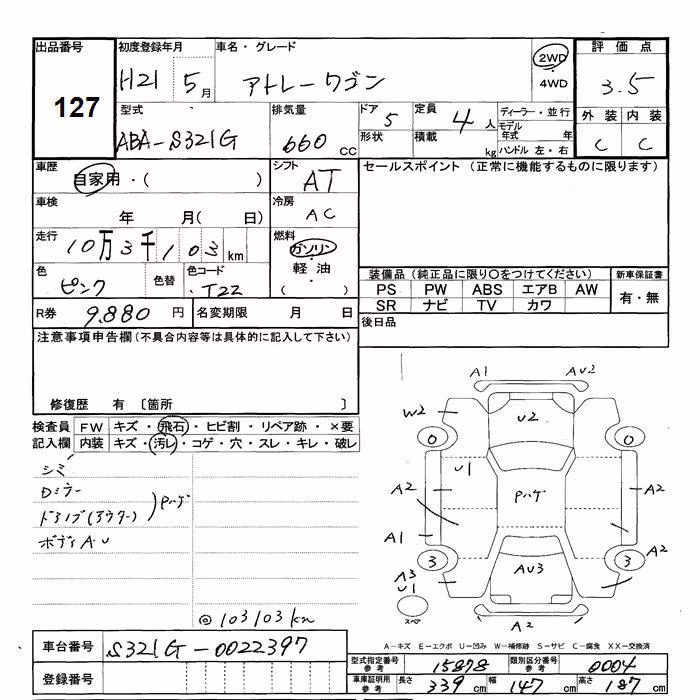 出品番号
127
初度登録年月
H21 5月
車名・グレード
アトレーワゴン
2WD
4WD
評価点
3.5
外装 内装
C C
型式
ABA-S321G
排気量
660 CC
ドア 5
形状
定員 4人
積載 kg
ディーラー・並行
モデル年式 年
ハンドル 左・右
車歴
自家用・( )
シフト
AT
車検
年 月( 日)
冷房
AC
走行
10万3千103 km
燃料
ガソリン
軽油
( )
色
ピンク
色替
色コード
T22
R券 9.880 円
名変期限 月 日
セールスポイント (正常に機能するものに限ります)
装備品(純正品に限り○をつけてください)
新車保証書
PS PW ABS エアB AW
有・無
SR ナビ TV カワ
後日品
注意事項申告欄(不具合内容等は具体的に記入して下さい)
修復歴 有 〔箇所 〕
検査員 FW キズ・飛石・ヒビ割・リペア跡・×要
記入欄 内装 キズ・汚レ・コゲ・穴・スレ・キレ・破レ
シミ
Dミラー
ドアノブ(アウター)
Pハゲ
ボディA.U
◎103103km
A1 AU2
W2 U2
0 0
U1
A2 Pハゲ A2
A1
3 AU3 3 A2
A3
U3
スペア
A2
A-キズ E-エクボ U-凹み W-補修跡 S-サビ C-腐食 XX-交換済
車台番号 S321G-0022397
登録番号
型式指定番号 参考 15878
類別区分番号 参考 0004
車庫証明用 参考 長さ 339 cm 幅 147 cm 高さ 187 cm